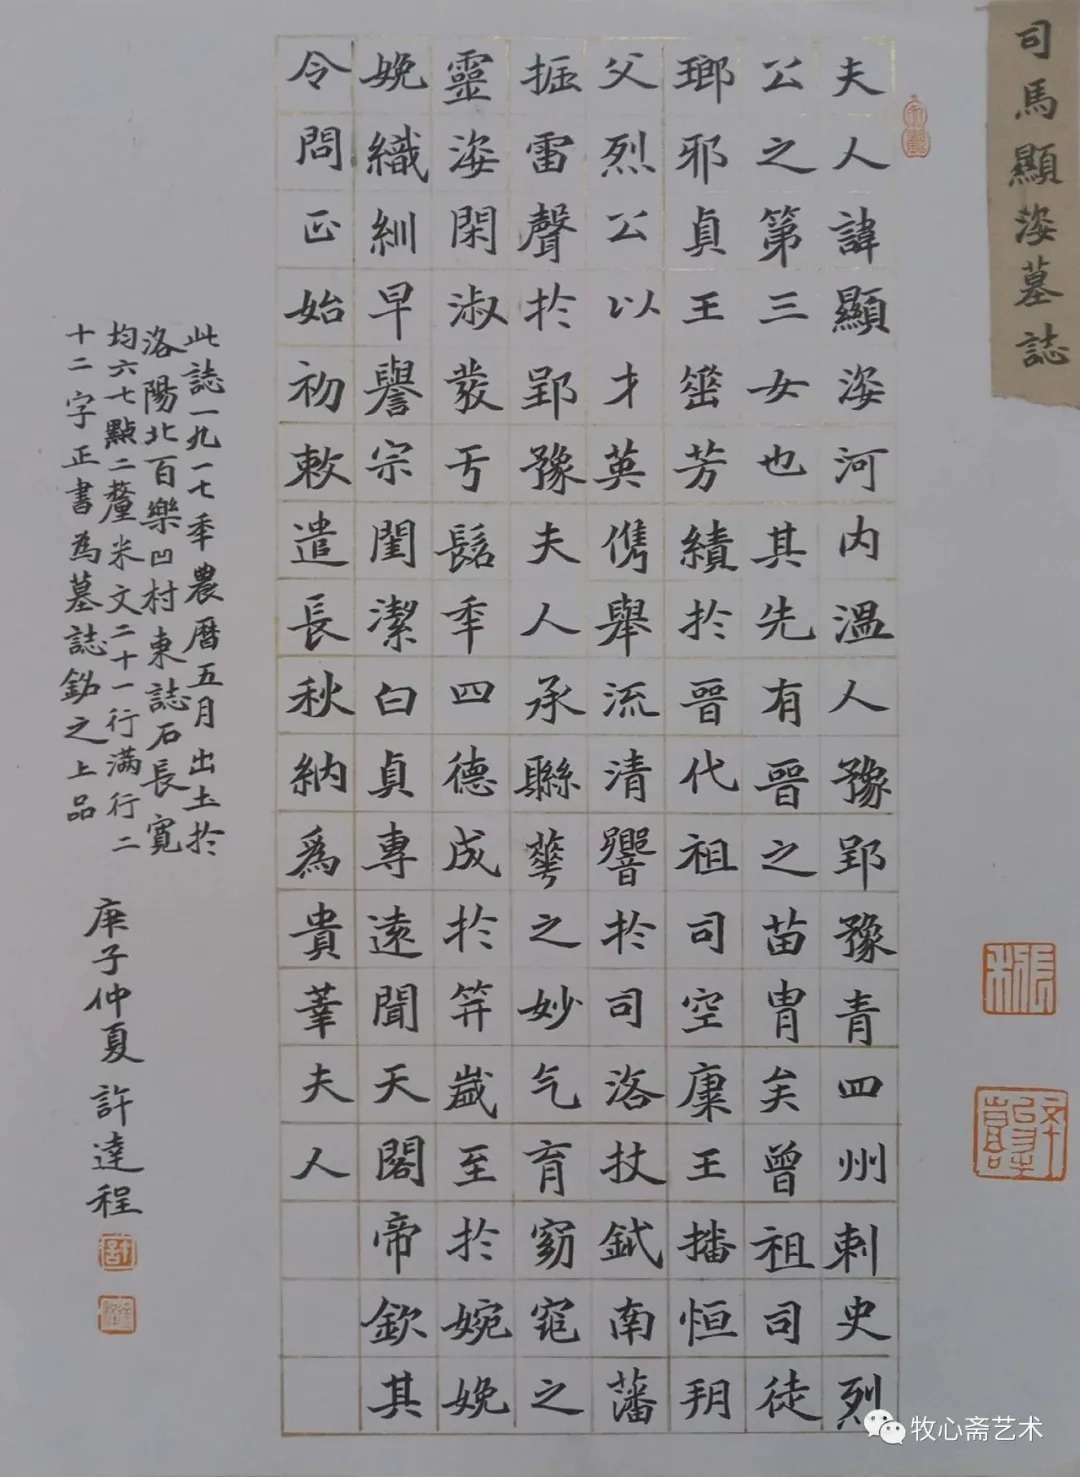 司馬顯姿墓誌
夫人諱顯姿河内温人豫郢豫青四州刺史烈
公之第三女也其先有晉之苗胄矣曾祖司徒
瑯耶貞王蕾芳績於晉代祖司空康王播恒玥
父烈公以才英儁舉流清響於司洛杖鉞南藩
振雷聲於郢豫夫人承聯華之妙气育窈窕之
靈姿閑淑發于髫秊四德成於笄歲至於婉娩
娩織紃早譽宗閨潔白貞專遠聞天閣帝欽其
令問正始初敕遣長秋納為貴華夫人
此誌一九一七秊農曆五月出土於
洛陽北百樂凹村東誌石長寬
均六七點二釐米文二十一行滿行二
十二字正書為墓誌銘之上品
庚子仲夏許達程
牧心斋艺术